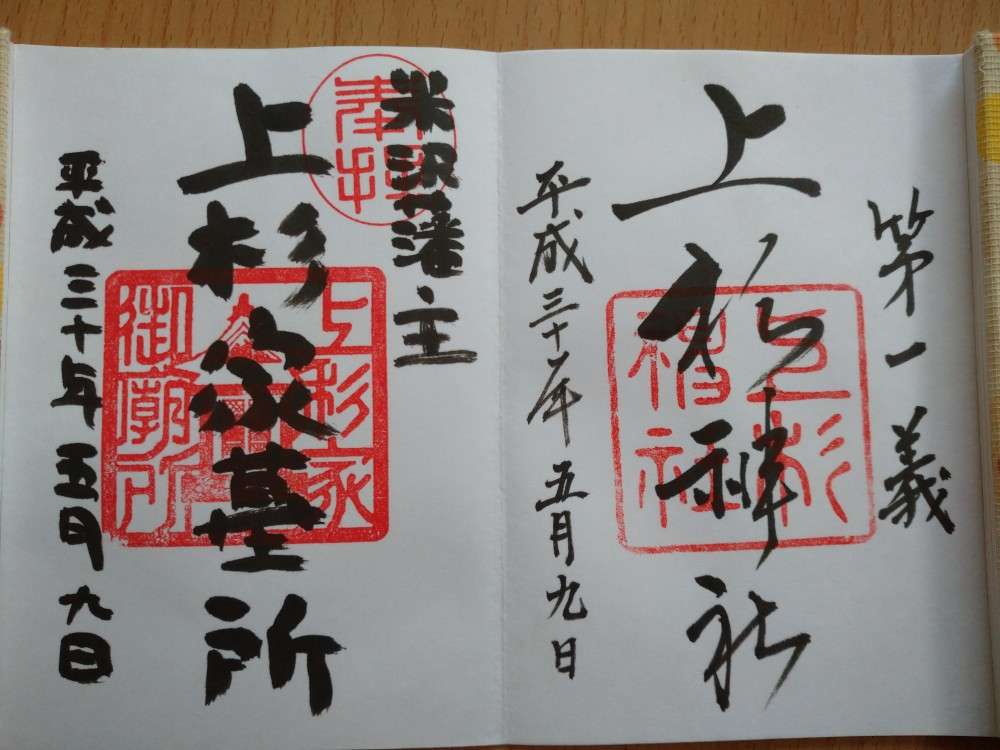 第一義
上杉神社
上杉
神社
平成三十年五月九日
奉拝
米沢藩主
上杉家墓所
上杉家
御廟所
平成三十年五月九日